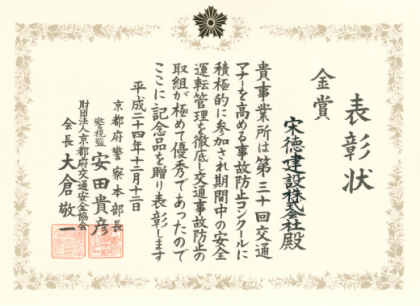 表彰状
金賞
宋徳建設株式会社殿
貴事業所は第三十回交通
マナーを高める事故防止コンクールに
積極的に参加され期間中の安全
運転管理を徹底し交通事故防止の
取組が極めて優秀であったので
ここに記念品を贈り表彰します
平成二十四年十二月十二日
京都府警察本部長
警視監 安田貴彦
財団法人京都府交通安全協会
会長 大倉敬一